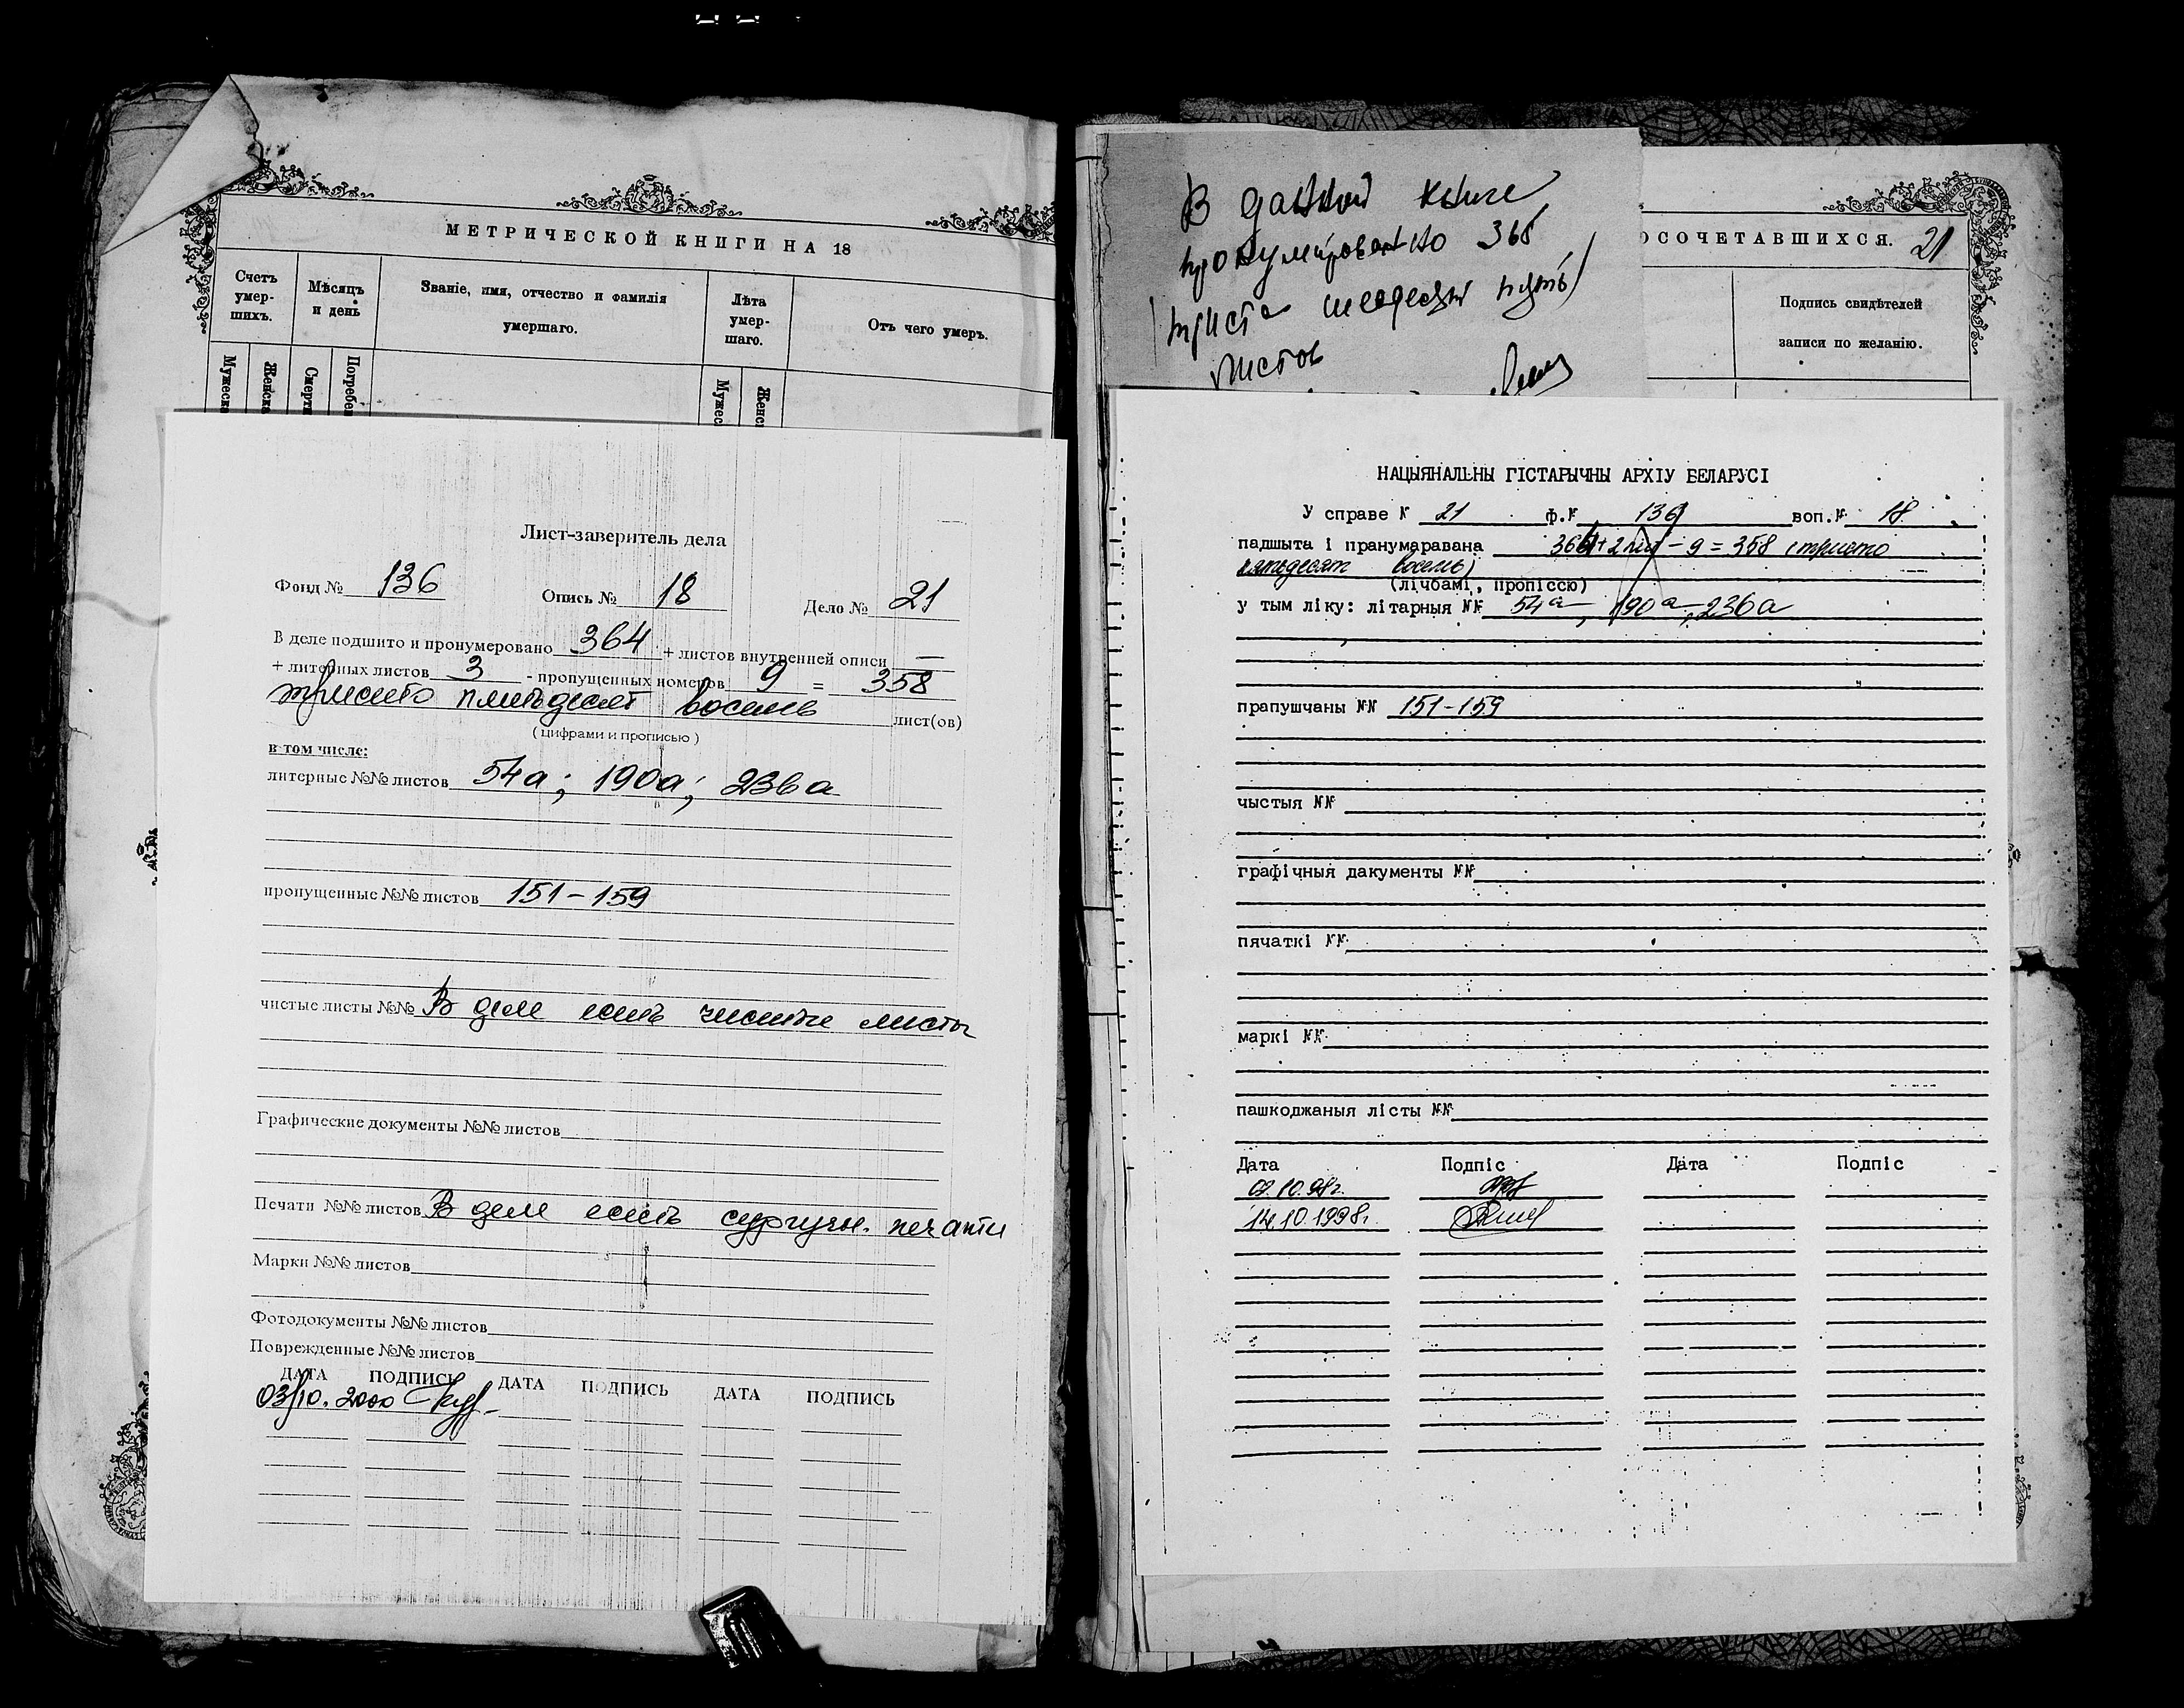 МЕТРИЧЕСКОЙ КНИГИ НА 18
Счетъ умер- шихъ.
Мѣсяцъ и день
Званіе, имя, отчество и фамилія умершаго.
Лѣта умер- шаго.
Отъ чего умеръ.
Мужеска
Женска
Смерти
Погребен
Мужес
Женс
Лист-заверитель дела
Фонд № 136 Опись № 18 Дело № 21
В деле подшито и пронумеровано 364 + листов внутренней описи —
+ литерных листов 3 - пропущенных номеров 9 = 358
триста пятьдесят восемь лист(ов)
(цифрами и прописью)
в том числе:
литерные №№ листов 54а; 190а; 236а
пропущенные №№ листов 151-159
чистые листы №№ В деле есть чистые листы
Графические документы №№ листов
Печати №№ листов В деле есть сургучн. печати
Марки №№ листов
Фотодокументы №№ листов
Поврежденные №№ листов
ДАТА ПОДПИСЬ ДАТА ПОДПИСЬ ДАТА ПОДПИСЬ
03/10.2000
В данной книге
пронумеровано 365
триста шесдесят пять)
листов
ОСОЧЕТАВШИХСЯ. 21
Подпись свидѣтелей
записи по желанію.
НАЦЫЯНАЛЬНЫ ГІСТАРЫЧНЫ АРХІУ БЕЛАРУСІ
У справе № 21 ф.№ 136 воп.№ 18
падшыта і пранумаравана 364+2 лит - 9 = 358 (триста
пятьдесят восемь)
(лічбамі, пропіссю)
у тым ліку: літарныя №№ 54а, 190а, 236а
прапушчаны №№ 151-159
чыстыя №№
графічныя дакументы №№
пячаткі №№
маркі №№
пашкоджаныя лісты №№
Дата Подпіс Дата Подпіс
10.98г.
14.10.1998г.